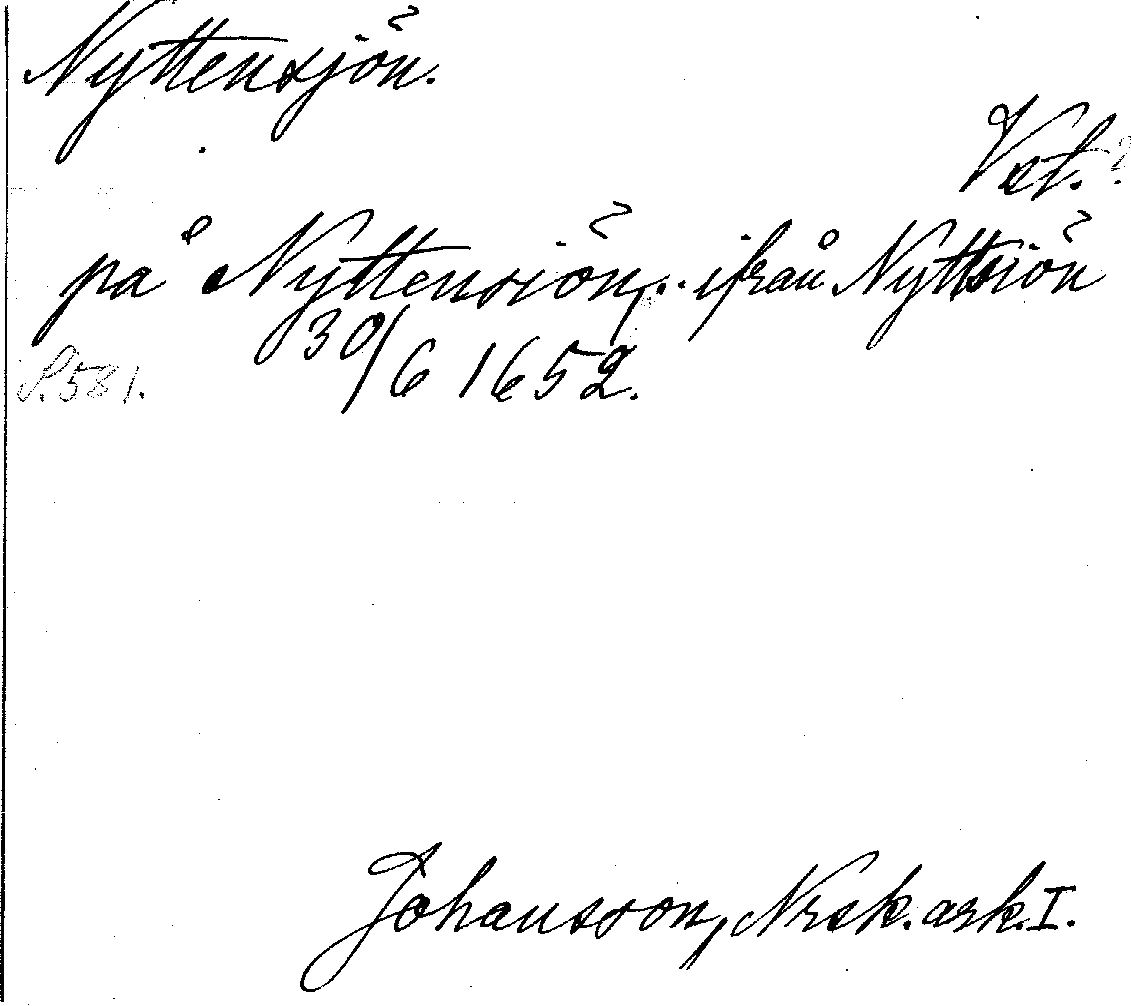 Nyttensjön.
Vst.?
på Nyttensiön, .. ifrån Nyttsiön
30/6 1652.
S. 581.
Johansson, Nrsk. ark. I.